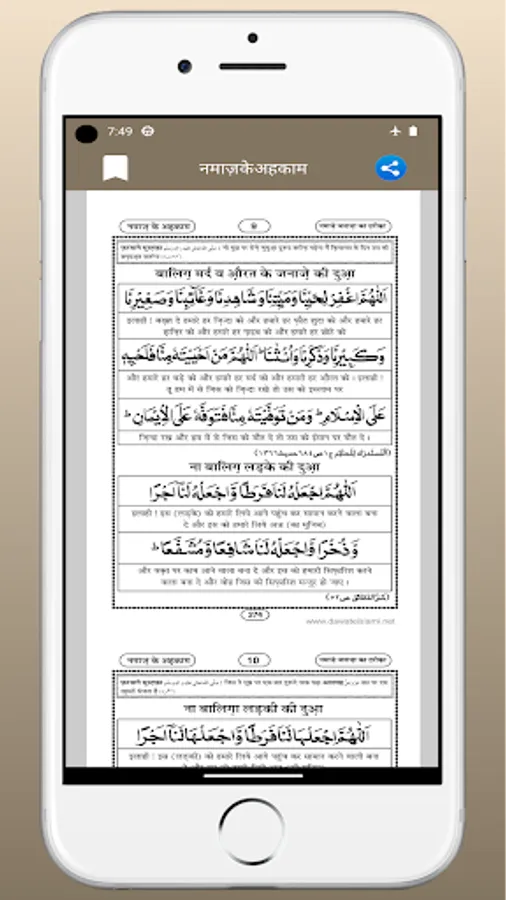 7:49
नमाज़केअहकाम
नमाज़ के अहकाम
9
नमाज़े जनाज़ा का त़रीक़ा
बालिग़ मर्द व औ़रत के जनाज़े की दुआ़
اَللّٰهُمَّ اغْفِرْ لِحَيِّنَا وَمَيِّتِنَا وَشَاهِدِنَا وَغَآئِبِنَا وَصَغِيْرِنَا
इलाही ! बख़्श दे हमारे हर ज़िन्दा को और हमारे हर फ़ौत शुदा को और हमारे हर
ह़ाज़िर को और हमारे हर ग़ाइब को और हमारे हर छोटे को
وَكَبِيْرِنَا وَذَكَرِنَا وَاُنْثَانَا ؕ اَللّٰهُمَّ مَنْ اَحْيَيْتَهٗ مِنَّا فَاَحْيِهٖ
और हमारे हर बड़े को और हमारे हर मर्द को और हमारी हर औ़रत को । इलाही !
तू हम में से जिस को ज़िन्दा रखे तो उस को इस्लाम पर
عَلَى الْاِسْلَامِ ؕ وَمَنْ تَوَفَّيْتَهٗ مِنَّا فَتَوَفَّهٗ عَلَى الْاِيْمَانِ ؕ
ज़िन्दा रख और हम में से जिस को मौत दे तो उस को ईमान पर मौत दे ।
(اَلْمُسْتَدْرَك لِلْحَاكِم ج ١ ص ٦٨٤ حديث ١٣٦٦)
ना बालिग़ लड़के की दुआ़
اَللّٰهُمَّ اجْعَلْهُ لَنَا فَرَطًا وَّاجْعَلْهُ لَنَآ اَجْرًا
इलाही ! इस (लड़के) को हमारे लिये आगे पहुंच कर सामान करने वाला बना
दे और इस को हमारे लिये अज्र (का मूजिब)
وَّذُخْرًا وَّاجْعَلْهُ لَنَا شَافِعًا وَّمُشَفَّعًا ؕ
और वक़्त पर काम आने वाला बना दे और इस को हमारी सिफ़ारिश करने
वाला बना दे और वोह जिस की सिफ़ारिश मन्ज़ूर हो जाए ।
274
www.dawateislami.net
नमाज़ के अहकाम
10
नमाज़े जनाज़ा का त़रीक़ा
ना बालिग़ा लड़की की दुआ़
اَللّٰهُمَّ اجْعَلْهَا لَنَا فَرَطًا وَّاجْعَلْهَا لَنَآ اَجْرًا
इलाही ! इस (लड़की) को हमारे लिये आगे पहुंच कर सामान करने वाली बना